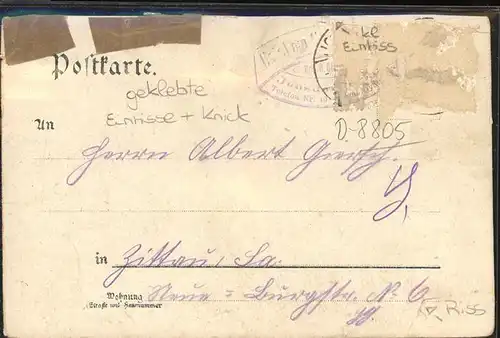 kl
Einriss
Postkarte.
Telefon Nr.
geklebte
Einrisse + Knick
D-8805
An
Herrn Albert
in Zittau, Sa.
Wohnung
(Straße und Hausnummer)
Neue - Burgstr. N. 6
Riss